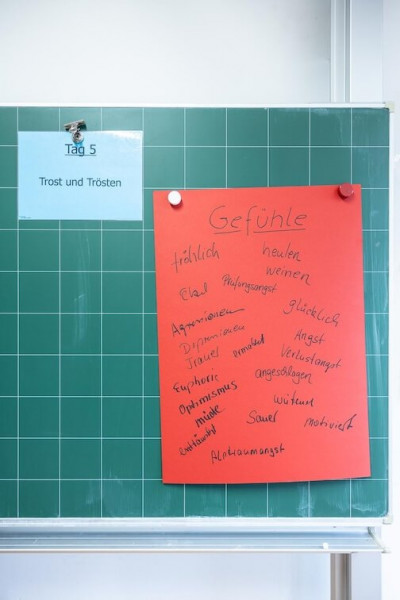 Tag 5
Trost und Trösten
Gefühle
fröhlich
heulen
weinen
Ekel
Prüfungsangst
glücklich
Aggressionen
Depressionen
Angst
Trauer
ermüdet
Verlustangst
Euphorie
angeschlagen
Optimismus
wütend
müde
Sauer
motiviert
enttäuscht
Alptraumangst